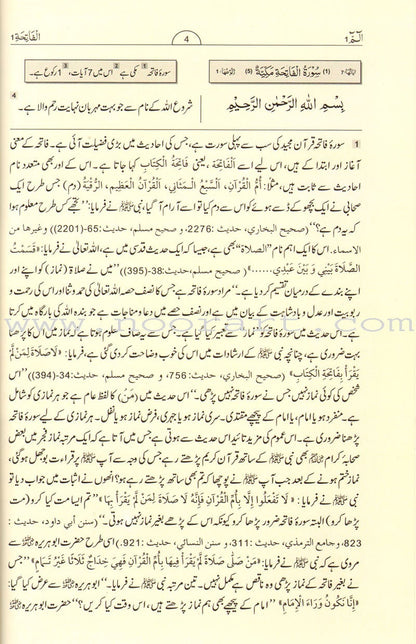 الٓمّٓ 1
4
الفَاتِحَة 1
(1) سُوْرَةُ الْفَاتِحَةِ مَكِّيَّةٌ (5)
سورۂ فاتحہ مکی ہے اس میں 7 آیات، 1 رکوع ہے۔
بِسْمِ اللهِ الرَّحْمٰنِ الرَّحِيْمِ
شروع اللہ کے نام سے جو بہت مہربان نہایت رحم والا ہے۔
1 سورۂ فاتحہ قرآن مجید کی سب سے پہلی سورت ہے، جس کی احادیث میں بڑی فضیلت آئی ہے۔ فاتحہ کے معنی
آغاز اور ابتدا کے ہیں، اس لیے اسے اَلْفَاتِحَة، یعنی فَاتِحَةُ الْكِتَابِ کہا جاتا ہے۔ اس کے اور بھی متعدد نام
احادیث سے ثابت ہیں، مثلًا: أُمُّ الْقُرْآنِ، اَلسَّبْعُ الْمَثَانِي، اَلْقُرْآنُ الْعَظِيم، الرُّقْيَةُ (دم) جس طرح ایک
صحابی نے ایک بچھو کے ڈسے ہوئے کو اس سے دم کیا تو اسے آرام آ گیا، نبی ﷺ نے فرمایا: ”تجھے کس طرح معلوم ہوا
کہ یہ دم ہے؟“ (صحيح البخاري، حديث: 2276، و صحيح مسلم، حديث: 65-(2201)) وغيرها من
الاسماء۔ اس کا ایک اہم نام ”الصلاة“ بھی ہے، جیسا کہ ایک حدیث قدسی میں ہے، اللہ تعالیٰ نے فرمایا: «قَسَمْتُ
الصَّلَاةَ بَيْنِي وَ بَيْنَ عَبْدِي......» (صحيح مسلم، حديث: 38-(395)) ”میں نے صلاۃ (نماز) کو اپنے اور
اپنے بندے کے درمیان تقسیم کر دیا ہے۔“ مراد سورۂ فاتحہ ہے جس کا نصف حصہ اللہ تعالیٰ کی حمد و ثنا اور اس کی رحمت و
ربوبیت اور عدل و بادشاہت کے بیان میں ہے اور نصف حصے میں دعا و مناجات ہے جو بندہ اللہ کی بارگاہ میں کرتا
ہے۔ اس حدیث میں سورۂ فاتحہ کو ”نماز“ سے تعبیر کیا گیا ہے۔ جس سے یہ صاف معلوم ہوتا ہے کہ نماز میں اس کا پڑھنا
بہت ضروری ہے، چنانچہ نبی ﷺ کے ارشادات میں اس کی خوب وضاحت کر دی گئی ہے، فرمایا: «لَا صَلَاةَ لِمَنْ لَّمْ
يَقْرَأْ بِفَاتِحَةِ الْكِتَابِ» (صحيح البخاري، حديث: 756، و صحيح مسلم، حديث: 34-(394)) ”اس
شخص کی کوئی نماز نہیں جس نے سورۂ فاتحہ نہیں پڑھی۔“ اس حدیث میں (مَنْ) کا لفظ عام ہے جو ہر نمازی کو شامل
ہے۔ منفرد ہو یا امام، یا امام کے پیچھے مقتدی۔ سری نماز ہو یا جہری، فرض نماز ہو یا نفل۔ ہر نمازی کے لیے سورۂ فاتحہ
پڑھنا ضروری ہے۔ اس عموم کی مزید تائید اس حدیث سے ہوتی ہے جس میں آتا ہے کہ ایک مرتبہ نماز فجر میں بعض
صحابہ کرام بھی نبی ﷺ کے ساتھ قرآن کریم پڑھتے رہے جس کی وجہ سے آپ ﷺ پر قراءت بوجھل ہو گئی،
نماز ختم ہونے کے بعد جب آپ ﷺ نے پوچھا کہ تم بھی ساتھ پڑھتے رہے ہو؟ انھوں نے اثبات میں جواب دیا تو
نبی ﷺ نے فرمایا: «لَا تَفْعَلُوا إِلَّا بِأُمِّ الْقُرْآنِ فَإِنَّهُ لَا صَلَاةَ لِمَنْ لَّمْ يَقْرَأْ بِهَا» ”تم ایسا مت کیا کرو (مت
پڑھا کرو) البتہ سورۂ فاتحہ ضرور پڑھا کرو کیونکہ اس کے پڑھے بغیر نماز نہیں ہوتی۔“ (سنن أبي داود، حديث:
823، وجامع الترمذي، حديث: 311، و سنن النسائي، حديث: 921) اسی طرح حضرت ابو ہریرہ سے
مروی ہے کہ نبی ﷺ نے فرمایا: «مَنْ صَلَّى صَلَاةً لَّمْ يَقْرَأْ فِيهَا بِأُمِّ الْقُرْآنِ فَهِيَ خِدَاجٌ ثَلَاثًا غَيْرُ تَمَامٍ» ”جس
نے بغیر فاتحہ کے نماز پڑھی وہ ناقص ہے مکمل نہیں۔ تین مرتبہ نبی ﷺ نے فرمایا۔“ ابو ہریرہ سے عرض کیا گیا:
«إِنَّا نَكُونُ وَرَاءَ الْإِمَامِ» ”امام کے پیچھے بھی ہم نماز پڑھتے ہیں، اس وقت کیا کریں؟“ حضرت ابو ہریرہ